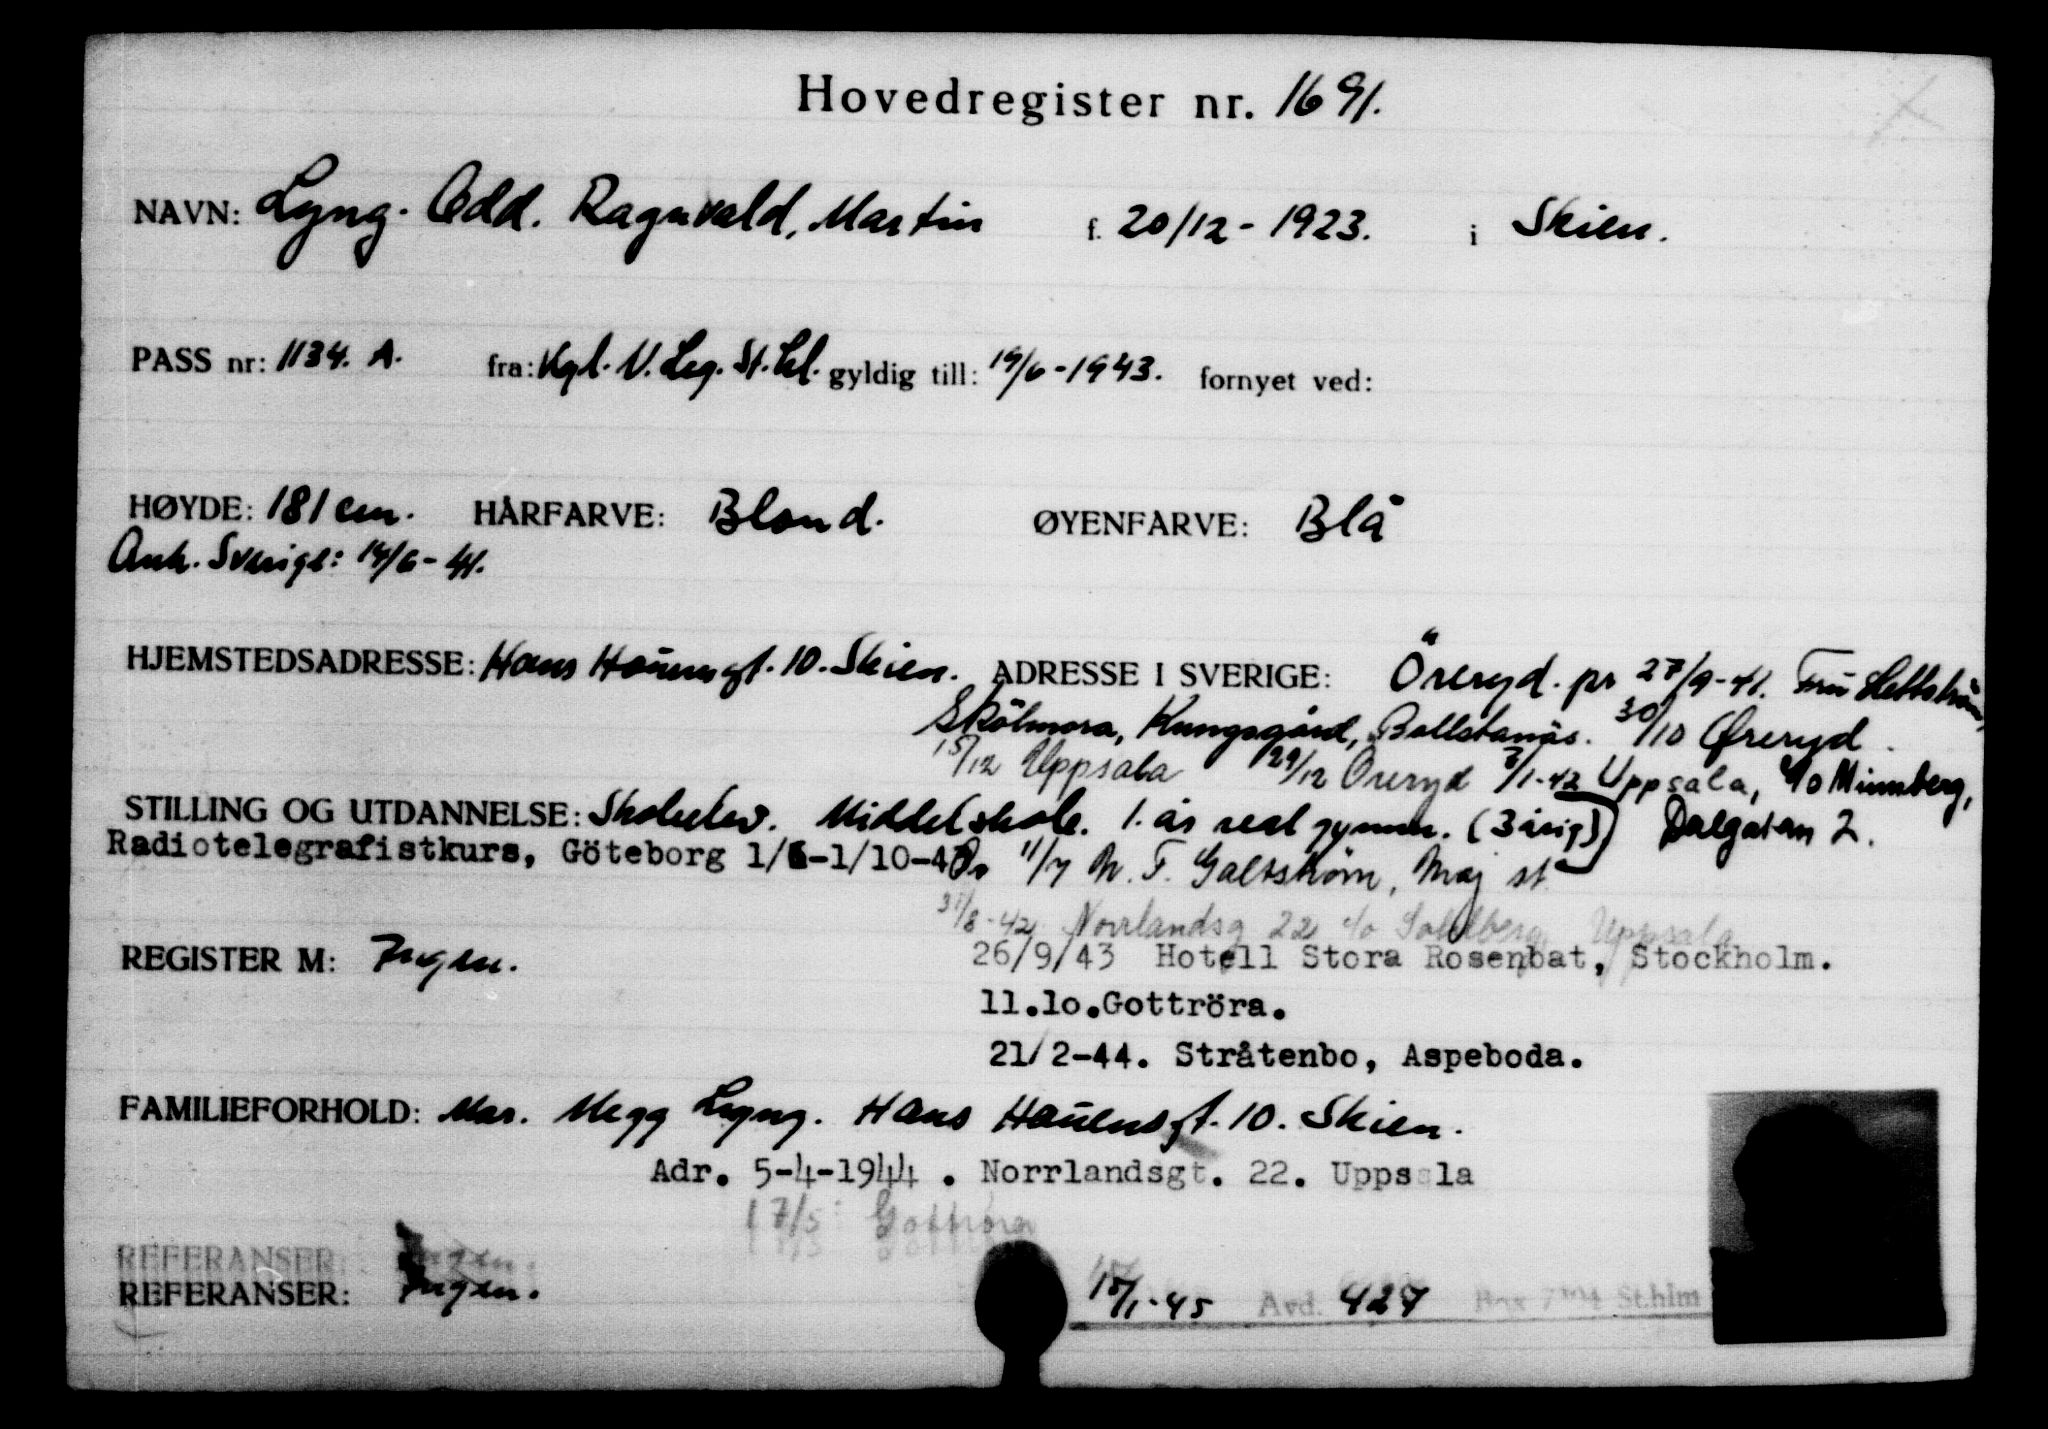 Hovedregister nr. 1691.
NAVN: Lyng. Odd. Ragnvald, Martin f. 20/12-1923. i Skien.
PASS nr: 1134. A. fra: Kgl. N. Leg. St.hl. gyldig till: 19/6-1943. fornyet ved:
HØYDE: 181 cm. HÅRFARVE: Blond. ØYENFARVE: Blå
Ank. Sverige: 14/6-41.
HJEMSTEDSADRESSE: Hans Houensgt. 10. Skien. ADRESSE I SVERIGE: Öreryd. pr 27/9-41. Fru
Kungsgård, Bollstanäs. 30/10 Øreryd.
15/12 Uppsala 29/12 Öreryd 7/1-42 Uppsala, c/o Minnberg,
STILLING OG UTDANNELSE: Skoleelev. Middelskole. 1. år real gymn. (3 årig) Dalgatan 2.
Radiotelegrafistkurs, Göteborg 1/6-1/10-43 11/7 M. F. Galtström, Maj st
31/8-42 Norrlandsg 22 c/o Sohlberg, Uppsala
REGISTER M: Ingen. 26/9/43 Hotell Stora Rosenbat, Stockholm.
11.10.Gottröra.
21/2-44. Stråtenbo, Aspeboda.
FAMILIEFORHOLD: Mor. Megg Lyng. Hans Houensgt. 10. Skien.
Adr. 5-4-1944. Norrlandsgt. 22. Uppsala
17/5 Gottröra
REFERANSER: Ingen.
REFERANSER: Ingen. 15/1-45 Avd. 427 Box 7104 St.hlm